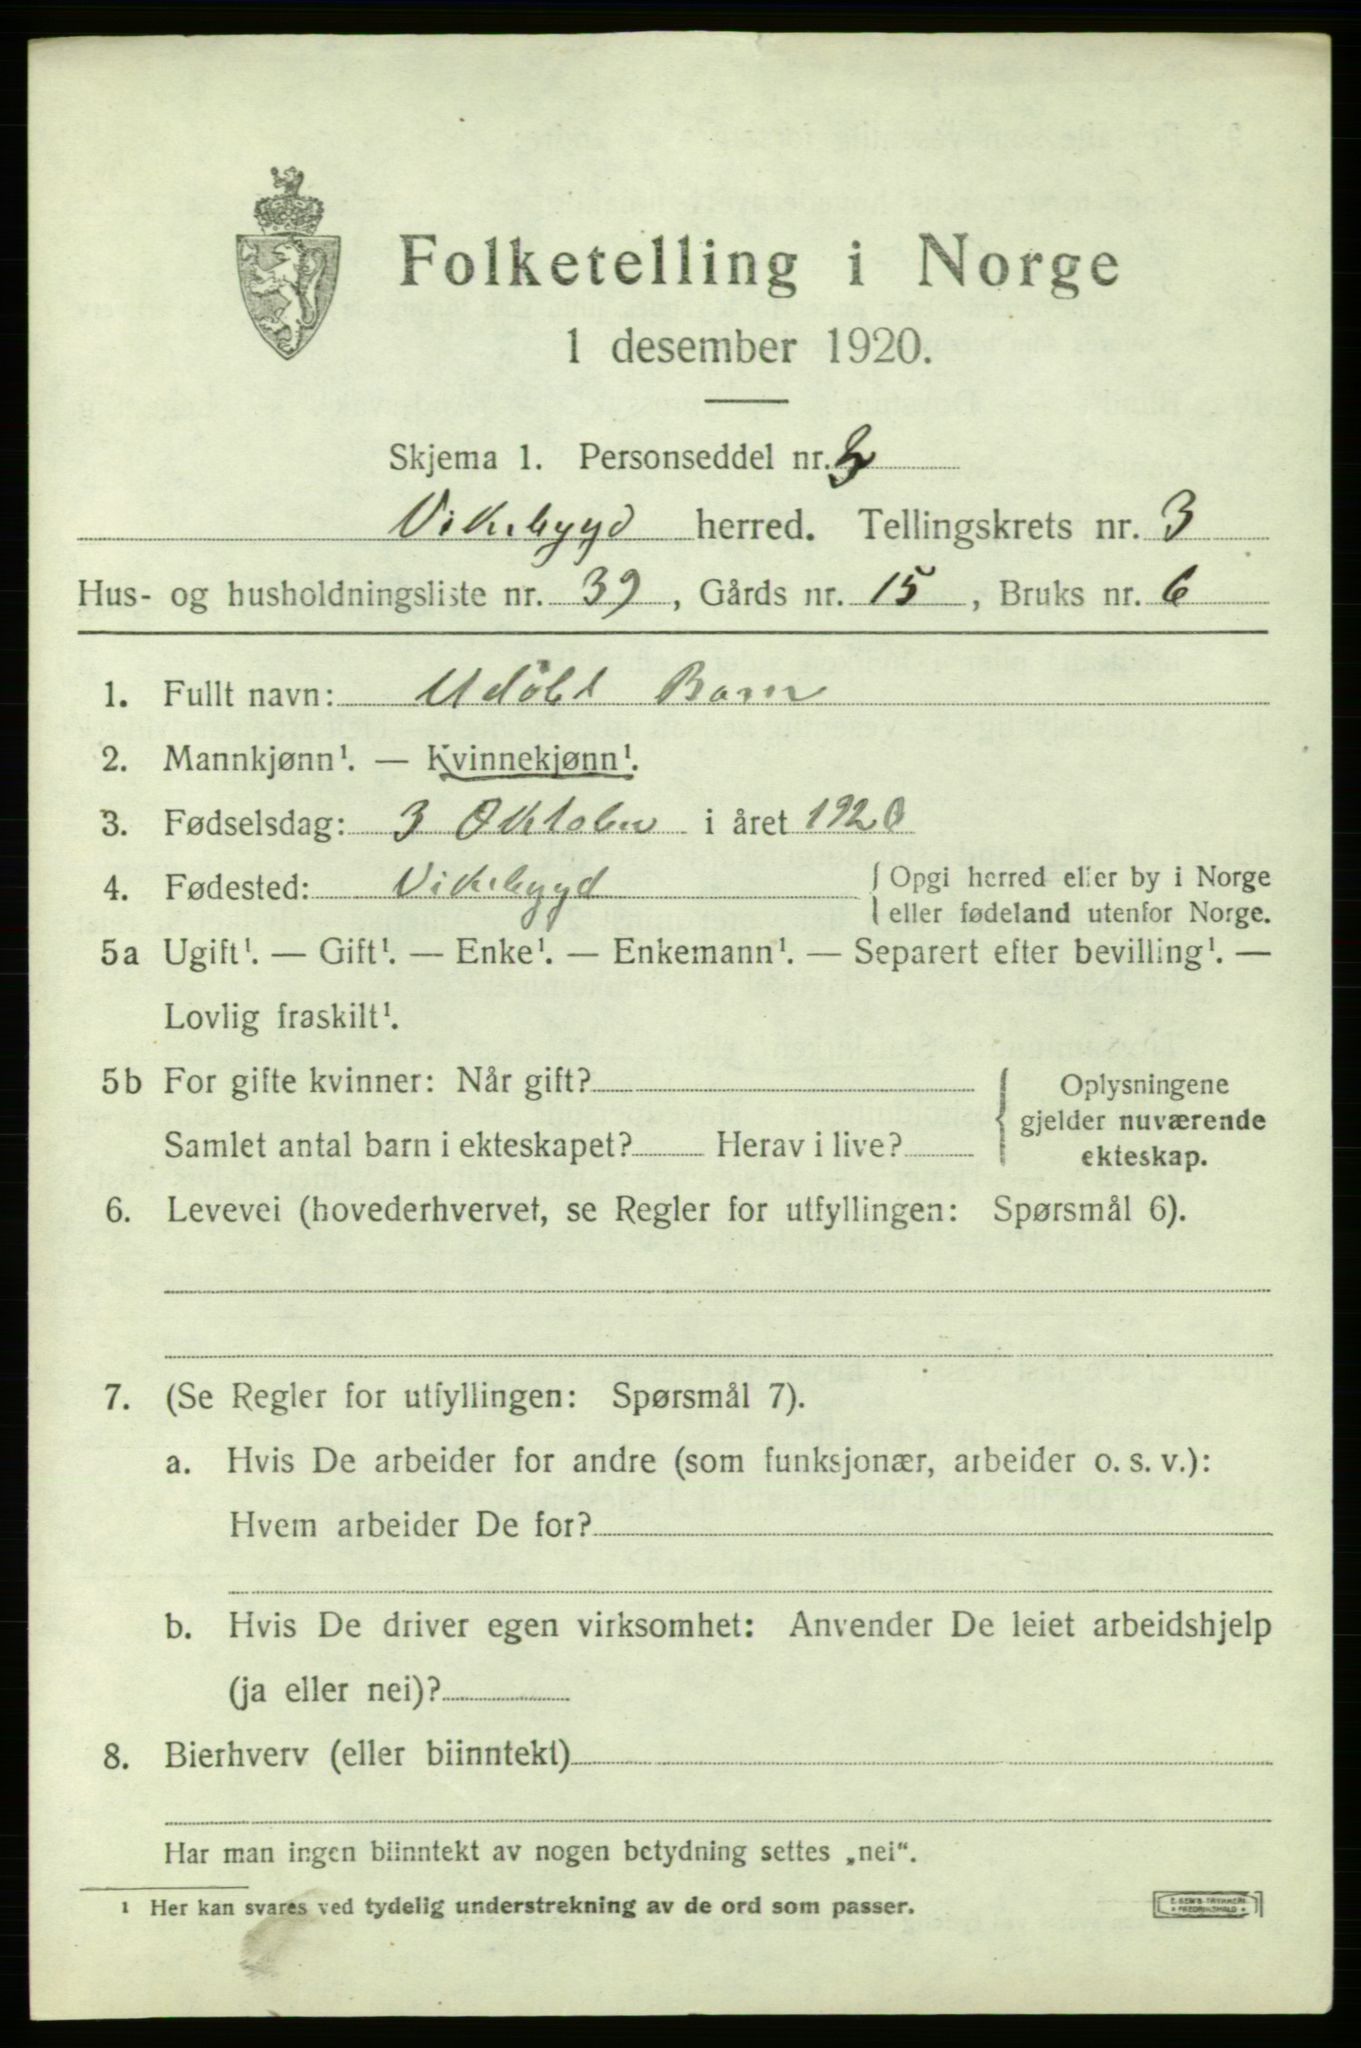 Folketelling i Norge
1 desember 1920.
Skjema 1. Personseddel nr. 3
Vikebygd herred. Tellingskrets nr. 3
Hus- og husholdningsliste nr. 39, Gårds nr. 15, Bruks nr. 6
1. Fullt navn: Udöbt Barn
2. Mannkjønn¹. — Kvinnekjønn¹.
3. Fødselsdag: 3 Oktober i året 1920
4. Fødested: Vikebygd { Opgi herred eller by i Norge
eller fødeland utenfor Norge.
5a Ugift¹. — Gift¹. — Enke¹. — Enkemann¹. — Separert efter bevilling¹. —
Lovlig fraskilt¹.
5b For gifte kvinner: Når gift?
Samlet antal barn i ekteskapet? Herav i live?
{ Oplysningene
gjelder nuværende
ekteskap.
6. Levevei (hovederhvervet, se Regler for utfyllingen: Spørsmål 6).
7. (Se Regler for utfyllingen: Spørsmål 7).
a. Hvis De arbeider for andre (som funksjonær, arbeider o. s. v.):
Hvem arbeider De for?
b. Hvis De driver egen virksomhet: Anvender De leiet arbeidshjelp
(ja eller nei)?
8. Bierhverv (eller biinntekt)
Har man ingen biinntekt av nogen betydning settes „nei“.
¹ Her kan svares ved tydelig understrekning av de ord som passer.